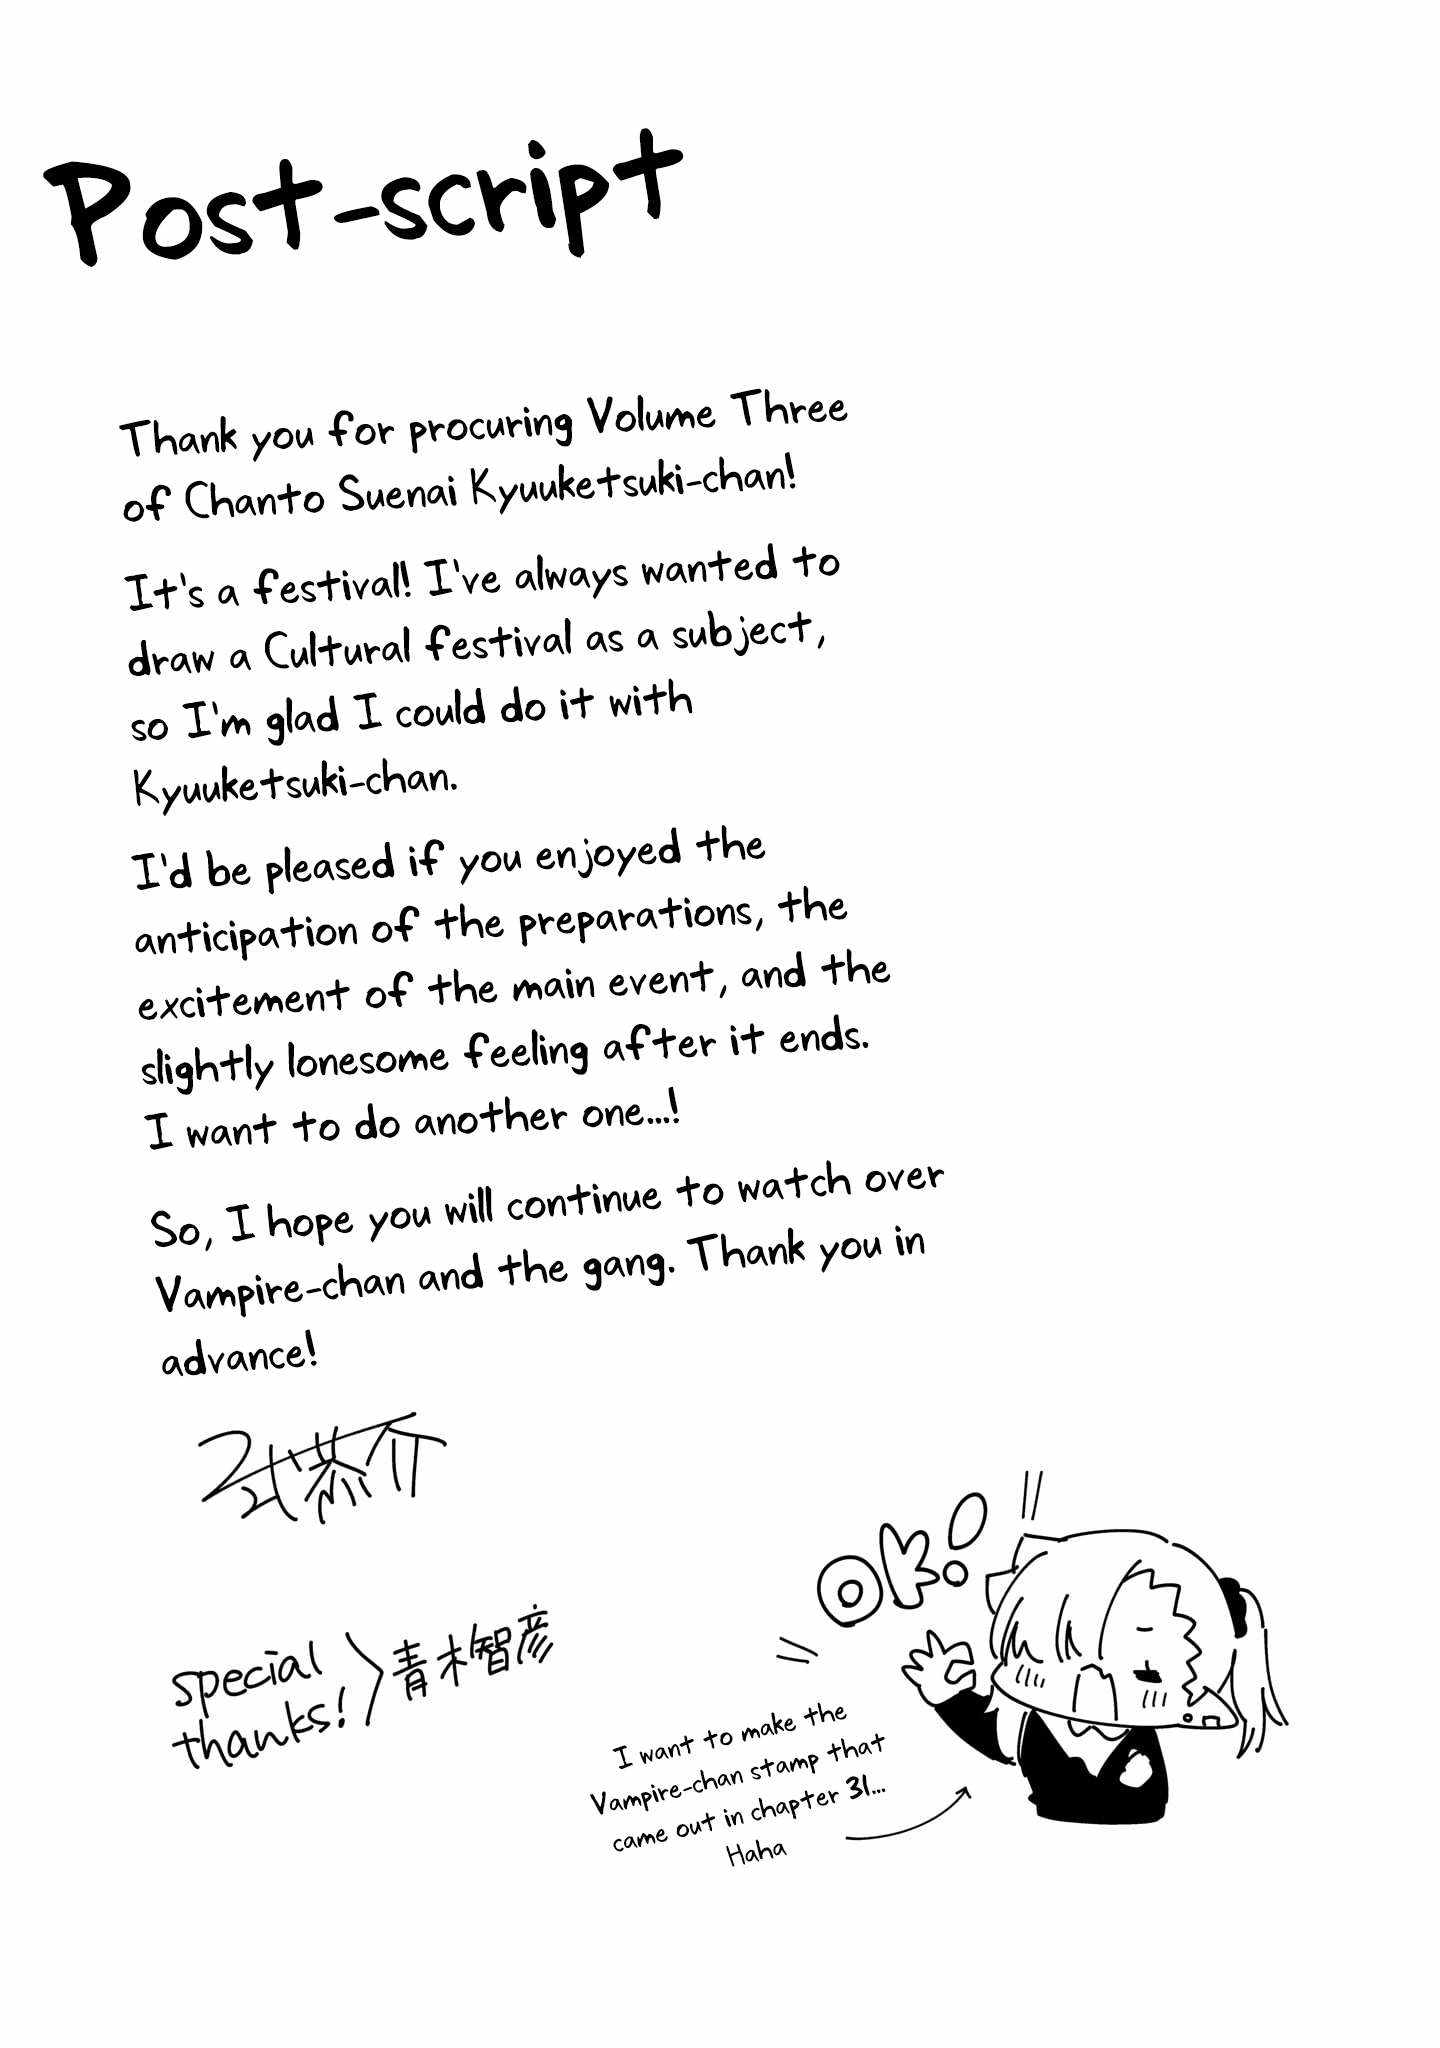 Post-script
Thank you for procuring Volume Three
of Chanto Suenai Kyuuketsuki-chan!
It's a festival! I've always wanted to
draw a Cultural festival as a subject,
so I'm glad I could do it with
Kyuuketsuki-chan.
I'd be pleased if you enjoyed the
anticipation of the preparations, the
excitement of the main event, and the
slightly lonesome feeling after it ends.
I want to do another one...!
So, I hope you will continue to watch over
Vampire-chan and the gang. Thank you in
advance!
OK!
special
thanks!
青木智彦
I want to make the
Vampire-chan stamp that
came out in chapter 31...
Haha